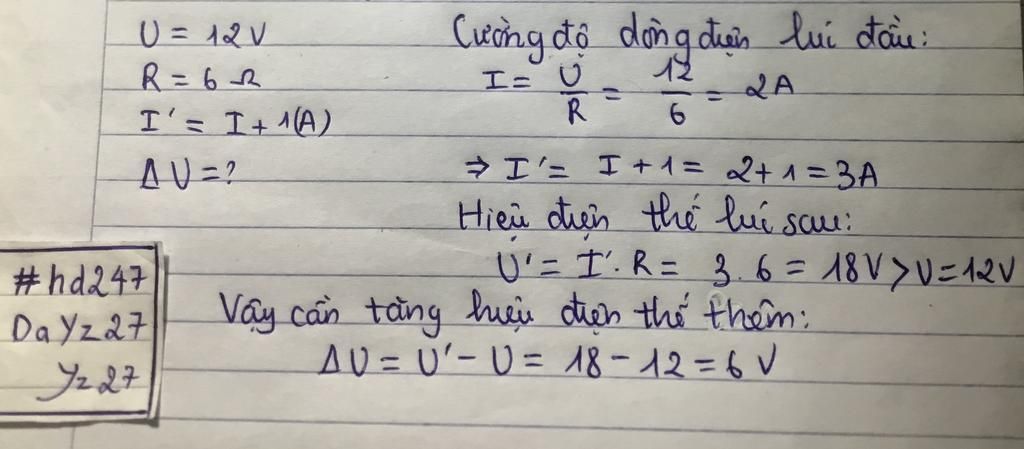 U = 12V
R = 6 Ω
I' = I + 1(A)
ΔU = ?
Cường độ dòng điện lúc đầu:
I = U/R = 12/6 = 2A
⇒ I' = I + 1 = 2 + 1 = 3A
Hiệu điện thế lúc sau:
U' = I'. R = 3.6 = 18V > U = 12V
Vậy cần tăng hiệu điện thế thêm:
ΔU = U' - U = 18 - 12 = 6 V
#hd247
DaYz27
Yz27